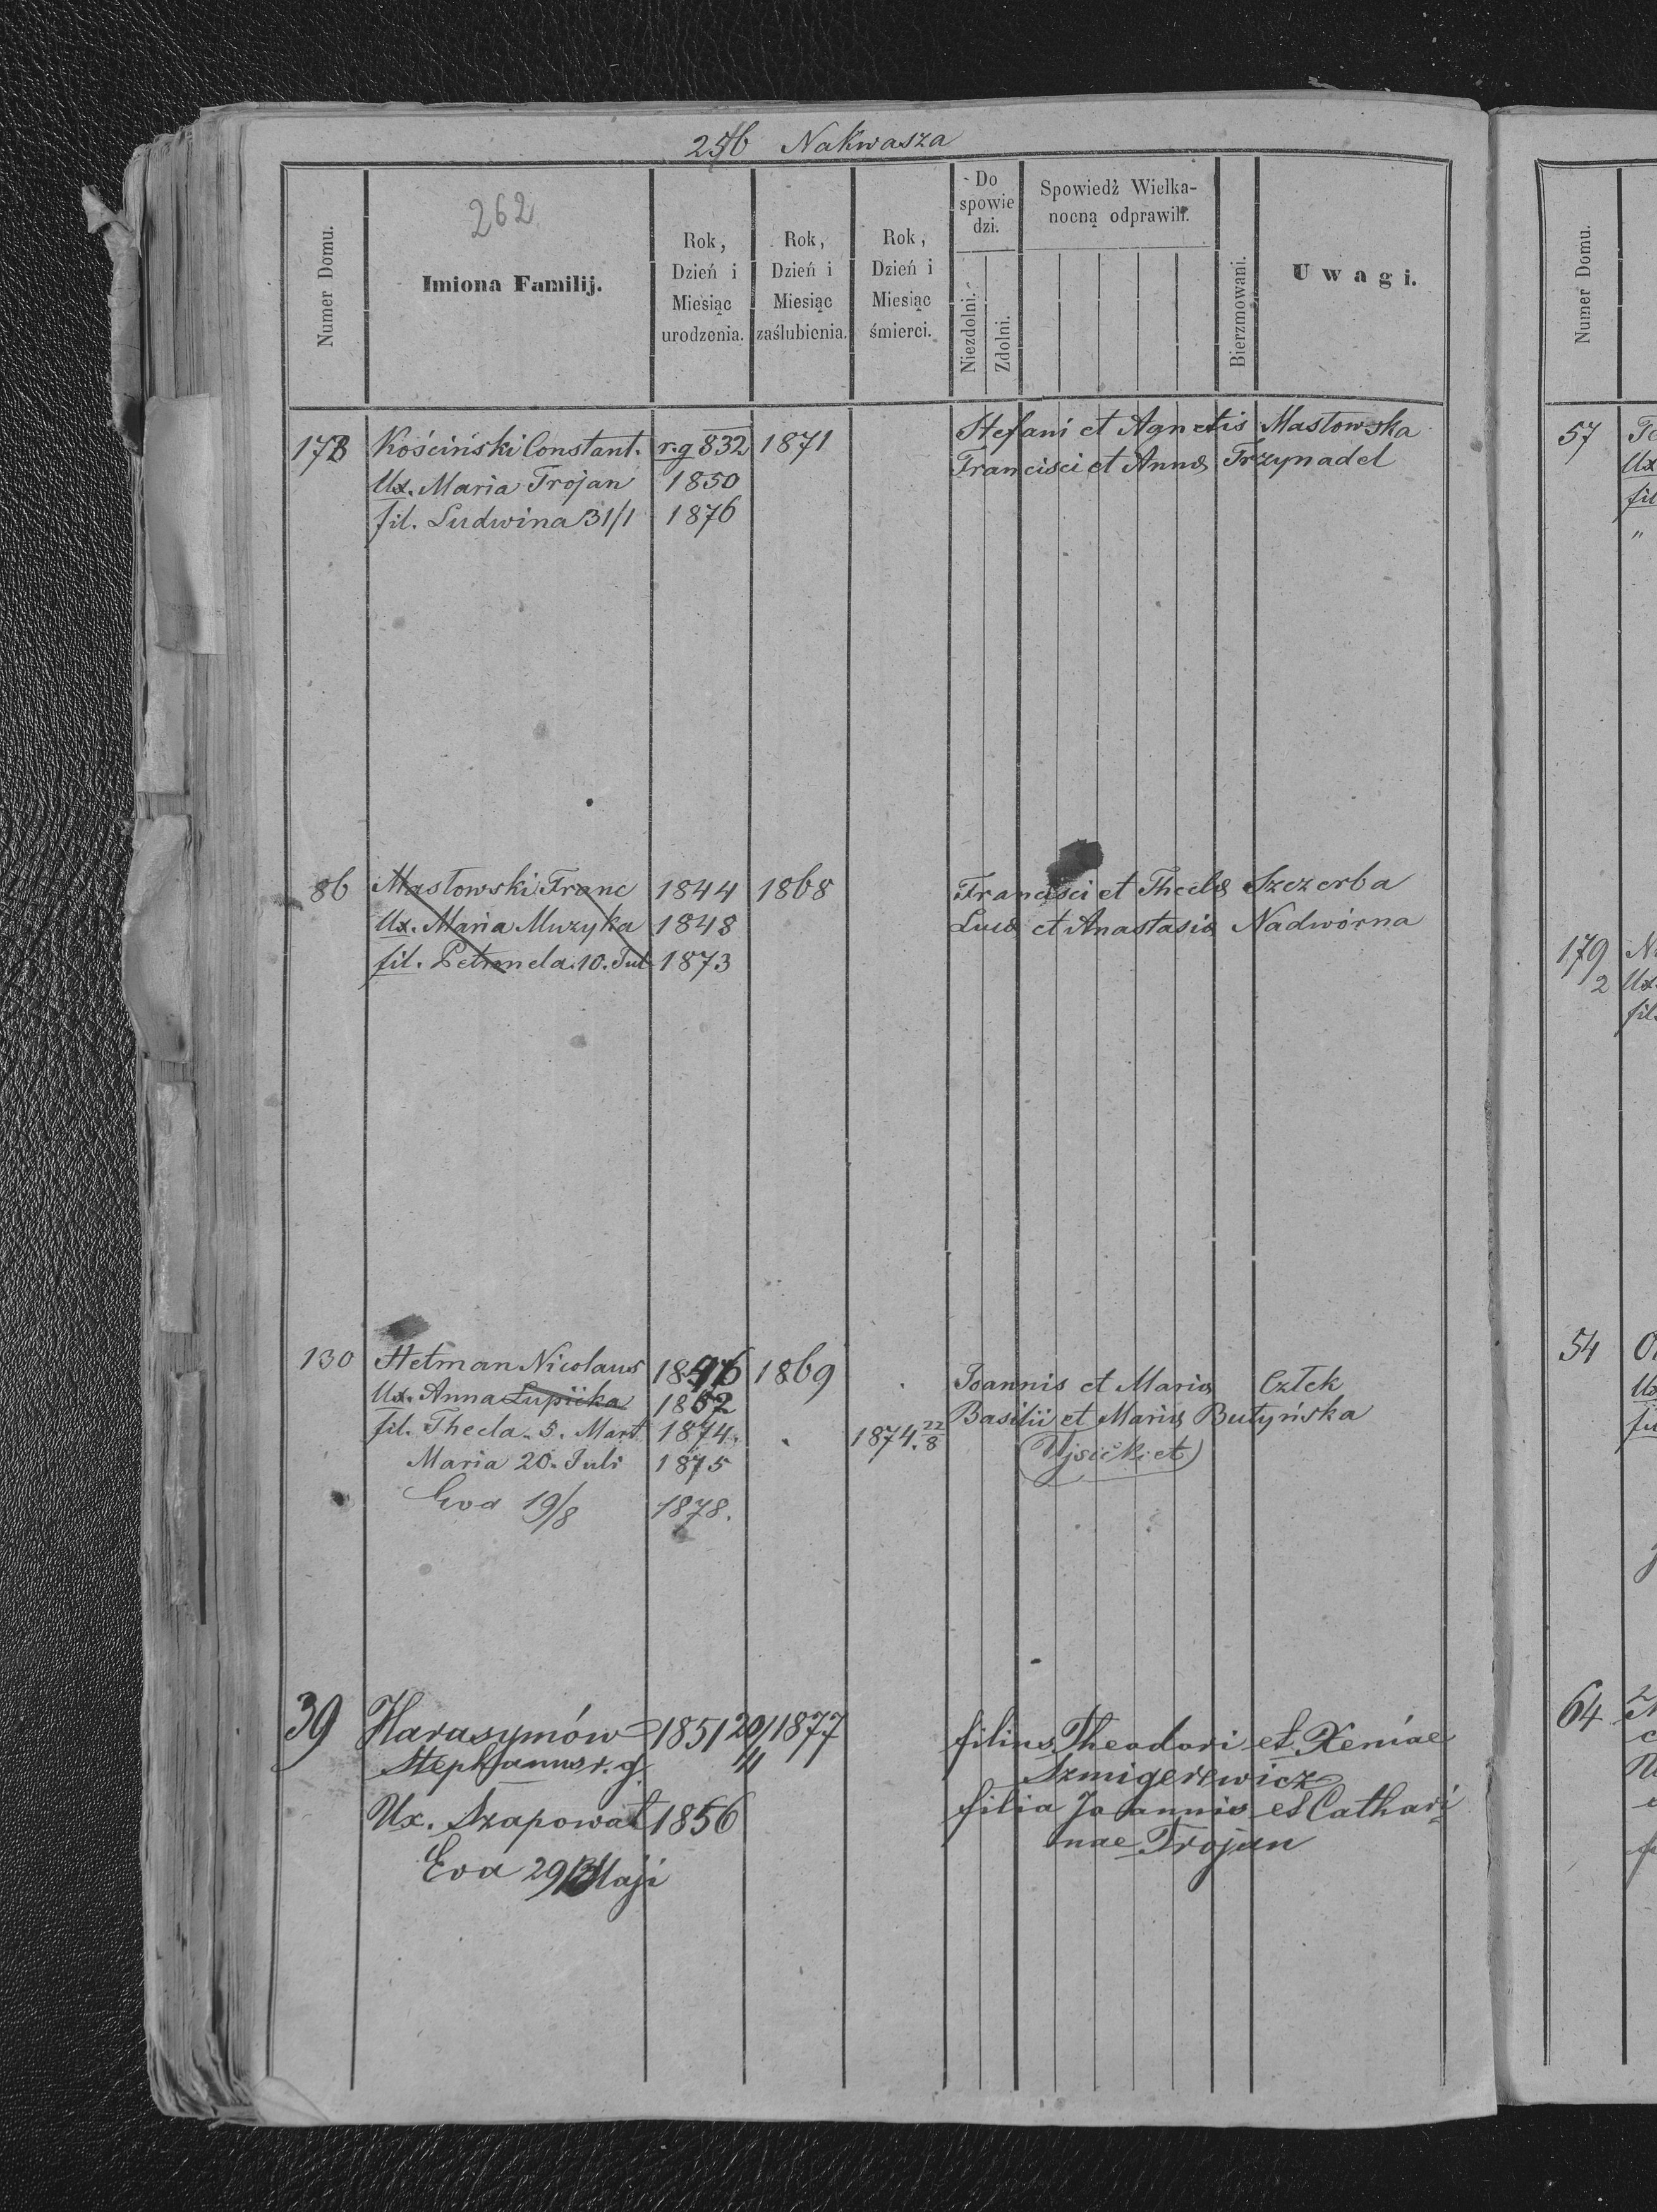 256 Nakwasza
262
Numer Domu.
Imiona Familij.
Rok, Dzień i Miesiąc urodzenia.
Rok, Dzień i Miesiąc zaślubienia.
Rok, Dzień i Miesiąc śmierci.
Do spowie dzi.
Niezdolni.
Zdolni.
Spowiedź Wielka-
nocną odprawili.
Bierzmowani.
Uwagi.
178 Kościński Constant. r.g 832 1871 Stefani et Agnetis Masłowska
Ux. Maria Trojan 1850 Francisci et Annæ Trzynadel
fil. Ludwina 31/1 1876
86 Masłowski Franc 1844 1868 Francisci et Theclæ Szczerba
Ux. Maria Muzyka 1848 Lucæ et Anastasiæ Nadwórna
fil. Petronela 10. Jul 1873
130 Hetman Nicolaus 1846 1869 Joannis et Mariæ Człek
Ux. Anna Łupićka 1852 Basilii et Mariæ Butyńska
fil. Thecla. 5. Mart 1874. 1874. 22/8
Maria 20. Juli 1875
Eva 19/8 1878.
39 Harasymów 1851 20/4 1877 filius Theodori et Xeniae
Stephanus r. g. Szmigerewicz
Ux. Szapował 1856 filia Joannis et Cathari
Eva 29 Maji nae Trojan
Numer Domu.
57
Ux
fil
"
179
2 Ux.
fil.
54
Ux
64